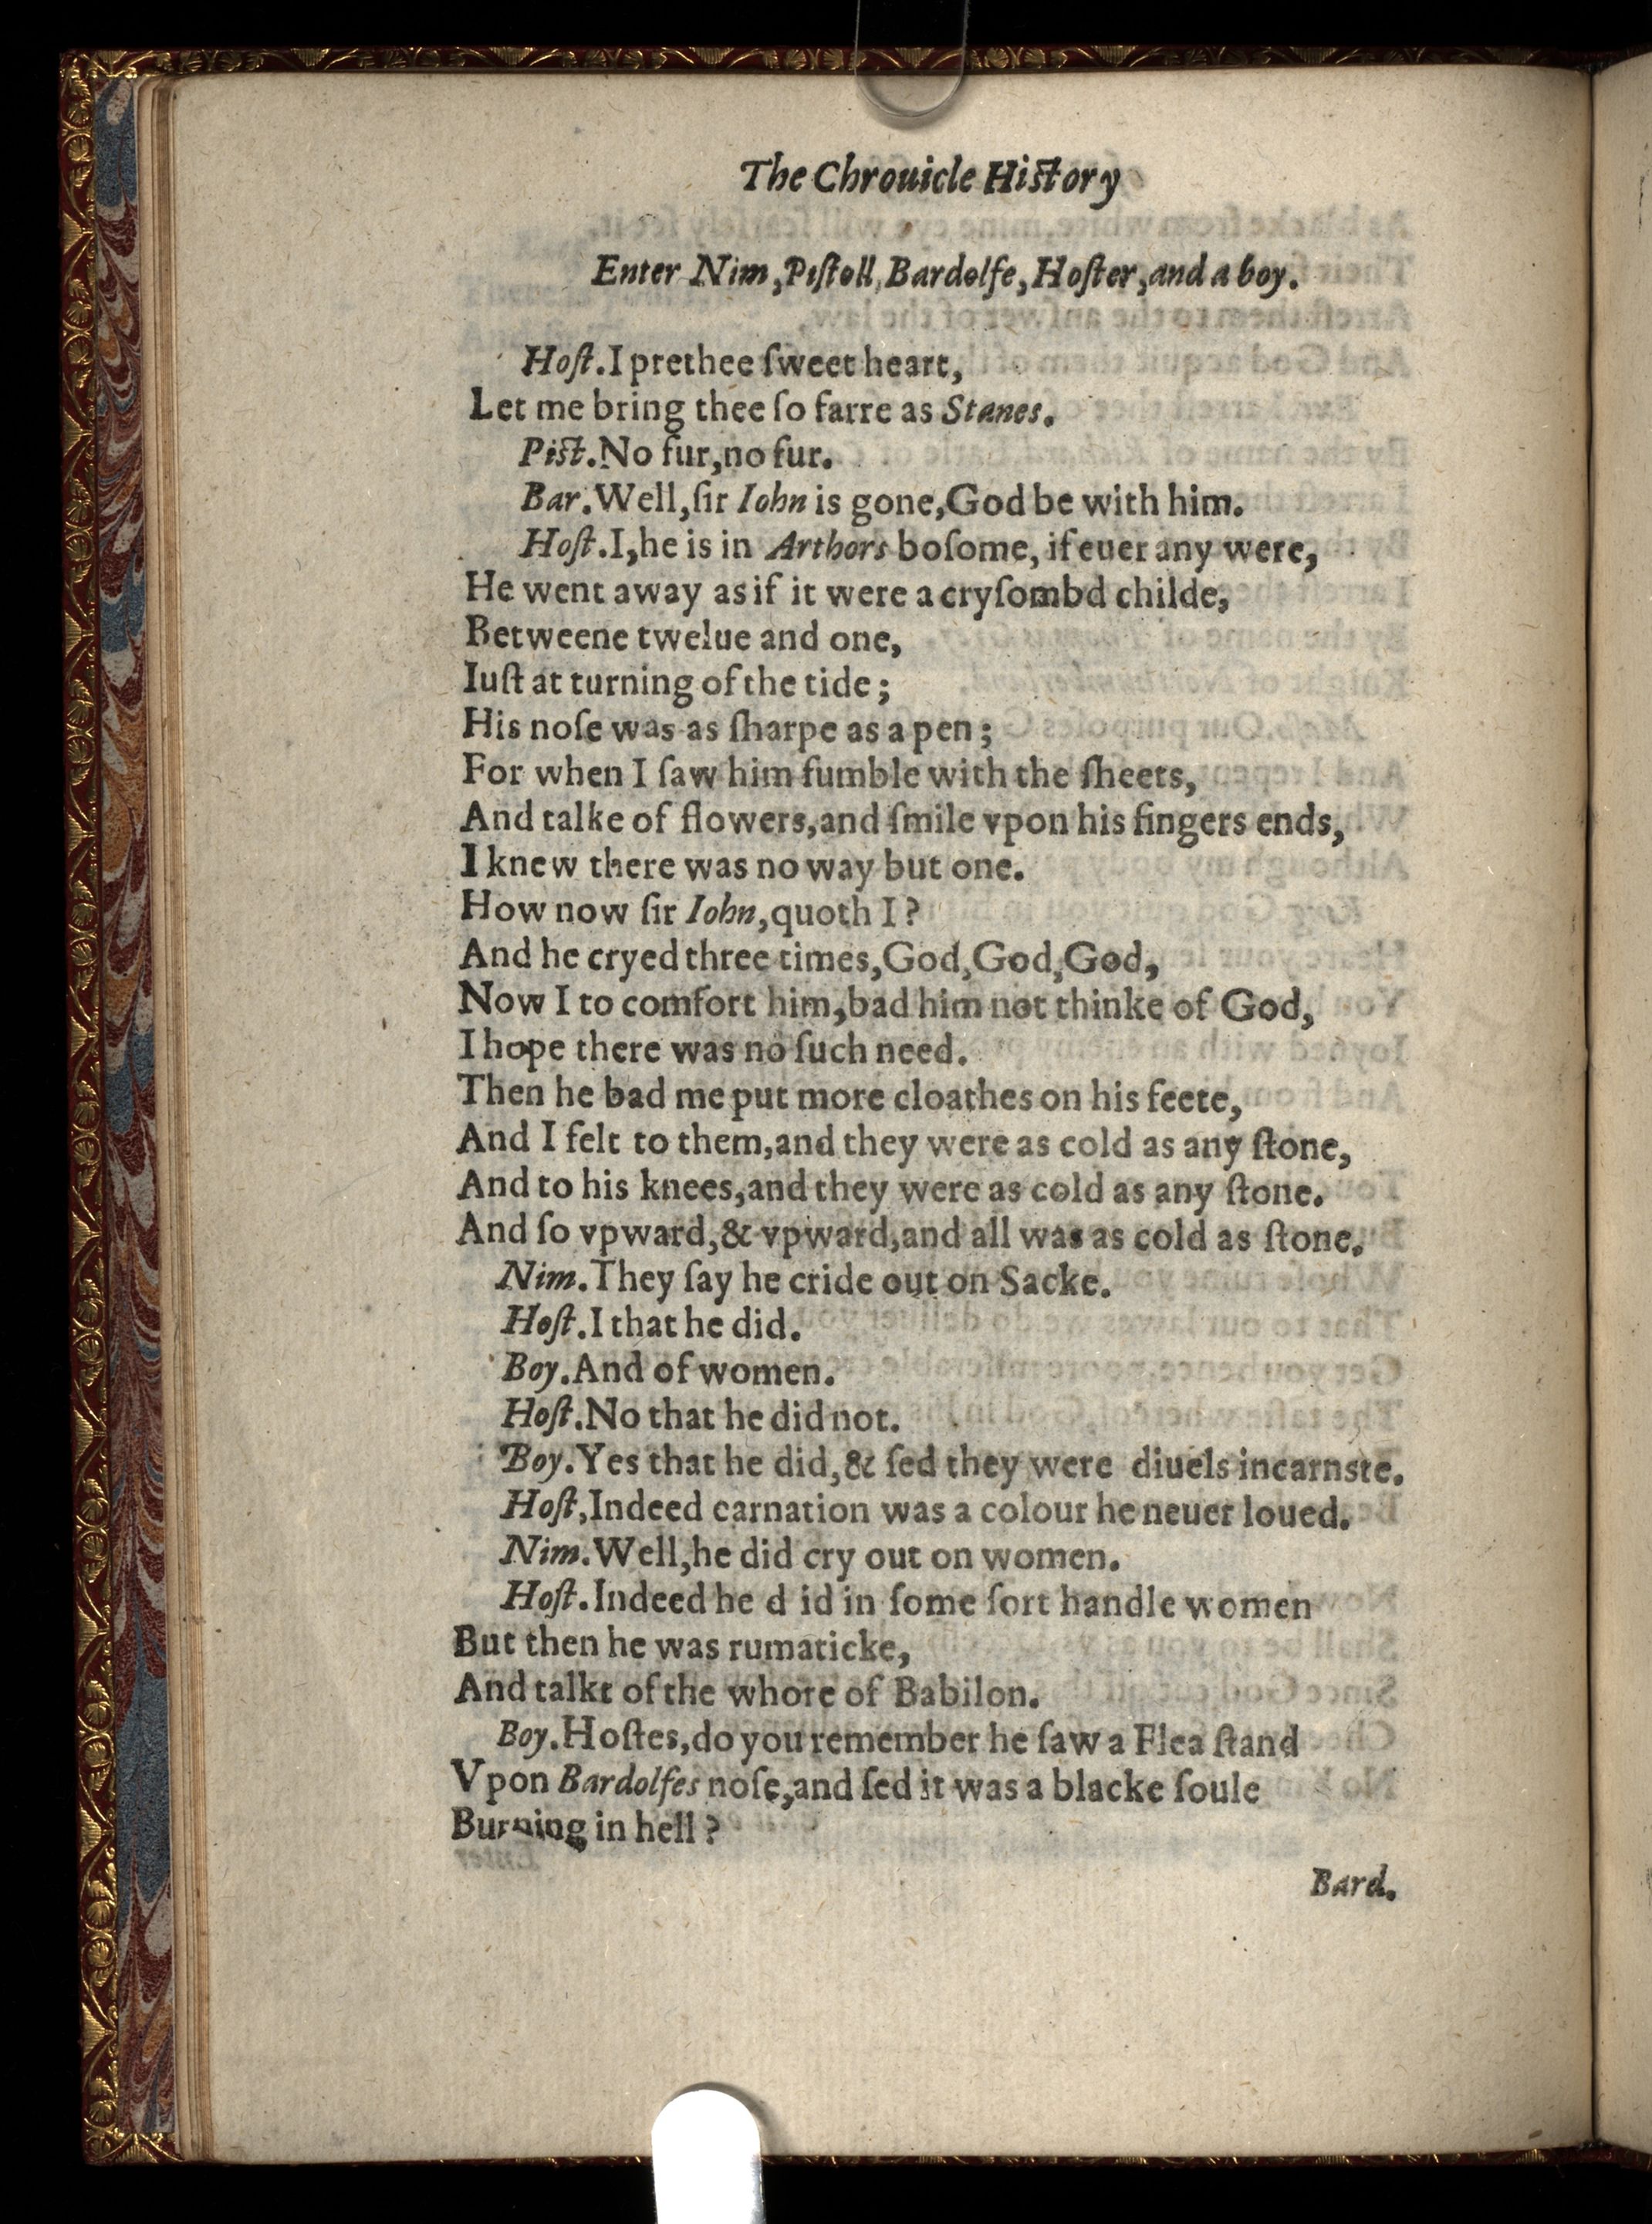 The Chrouicle Hiſtory
Enter Nim, Piſtoll, Bardolfe, Hoſter, and a boy.
Hoſt. I prethee ſweet heart,
Let me bring thee ſo farre as Stanes.
Piſt. No fur, no fur.
Bar. Well, ſir Iohn is gone, God be with him.
Hoſt. I, he is in Arthors boſome, if euer any were,
He went away as if it were a cryſombd childe,
Betweene twelue and one,
Iuſt at turning of the tide;
His noſe was as ſharpe as a pen;
For when I ſaw him fumble with the ſheets,
And talke of flowers, and ſmile vpon his fingers ends,
I knew there was no way but one.
How now ſir Iohn, quoth I?
And he cryed three times, God, God, God,
Now I to comfort him, bad him not thinke of God,
I hope there was no ſuch need.
Then he bad me put more cloathes on his feete,
And I felt to them, and they were as cold as any ſtone,
And to his knees, and they were as cold as any ſtone.
And ſo vpward, & vpward, and all was as cold as ſtone.
Nim. They ſay he cride out on Sacke.
Hoſt. I that he did.
Boy. And of women.
Hoſt. No that he did not.
Boy. Yes that he did, & ſed they were diuels incarnste.
Hoſt, Indeed carnation was a colour he neuer loued.
Nim. Well, he did cry out on women.
Hoſt. Indeed he d id in ſome ſort handle women
But then he was rumaticke,
And talkt of the whore of Babilon.
Boy. Hoſtes, do you remember he ſaw a Flea ſtand
Vpon Bardolfes noſe, and ſed it was a blacke ſoule
Burning in hell?
Bard.